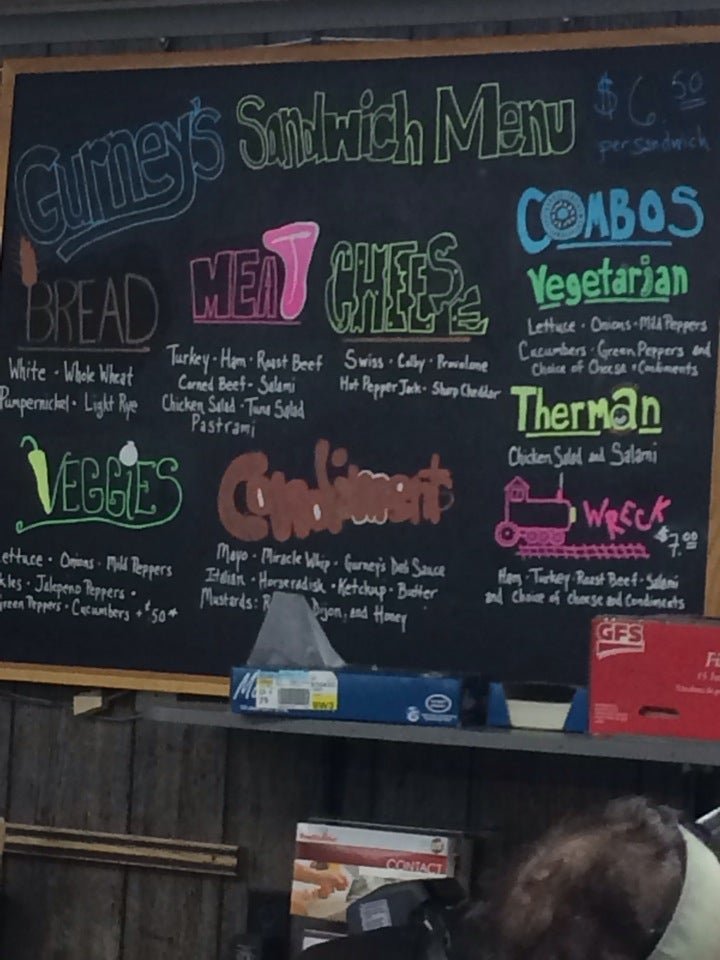 Gurney's Sandwich Menu
$6.50
per sandwich
BREAD
White · Whole Wheat
Pumpernickel · Light Rye
MEAT
Turkey · Ham · Roast Beef
Corned Beef · Salami
Chicken Salad · Tuna Salad
Pastrami
CHEESE
Swiss · Colby · Provolone
Hot Pepper Jack · Sharp Cheddar
COMBOS
Vegetarian
Lettuce · Onions · Mild Peppers
Cucumbers · Green Peppers and
Choice of Cheese · Condiments
Therman
Chicken Salad and Salami
WRECK
$7.00
Ham · Turkey · Roast Beef · Salami
and choice of cheese and Condiments
VEGGIES
ettuce · Onions · Mild Peppers
kles · Jalapeno Peppers ·
reen Peppers · Cucumbers + $.50*
Condiment
Mayo · Miracle Whip · Gurney's Deli Sauce
Italian · Horseradish · Ketchup · Butter
Mustards: Dijon, and Honey
GFS
CONTACT